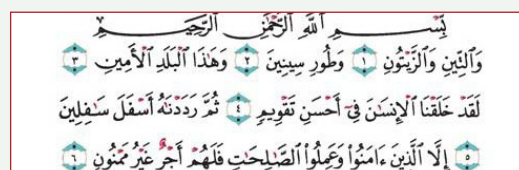 بِسْمِ اللَّهِ الرَّحْمَٰنِ الرَّحِيمِ
وَالتِّينِ وَالزَّيْتُونِ ۝١ وَطُورِ سِينِينَ ۝٢ وَهَٰذَا الْبَلَدِ الْأَمِينِ ۝٣
لَقَدْ خَلَقْنَا الْإِنسَٰنَ فِىٓ أَحْسَنِ تَقْوِيمٍ ۝٤ ثُمَّ رَدَدْنَٰهُ أَسْفَلَ سَٰفِلِينَ
۝٥ إِلَّا الَّذِينَ ءَامَنُوا۟ وَعَمِلُوا۟ الصَّٰلِحَٰتِ فَلَهُمْ أَجْرٌ غَيْرُ مَمْنُونٍ ۝٦